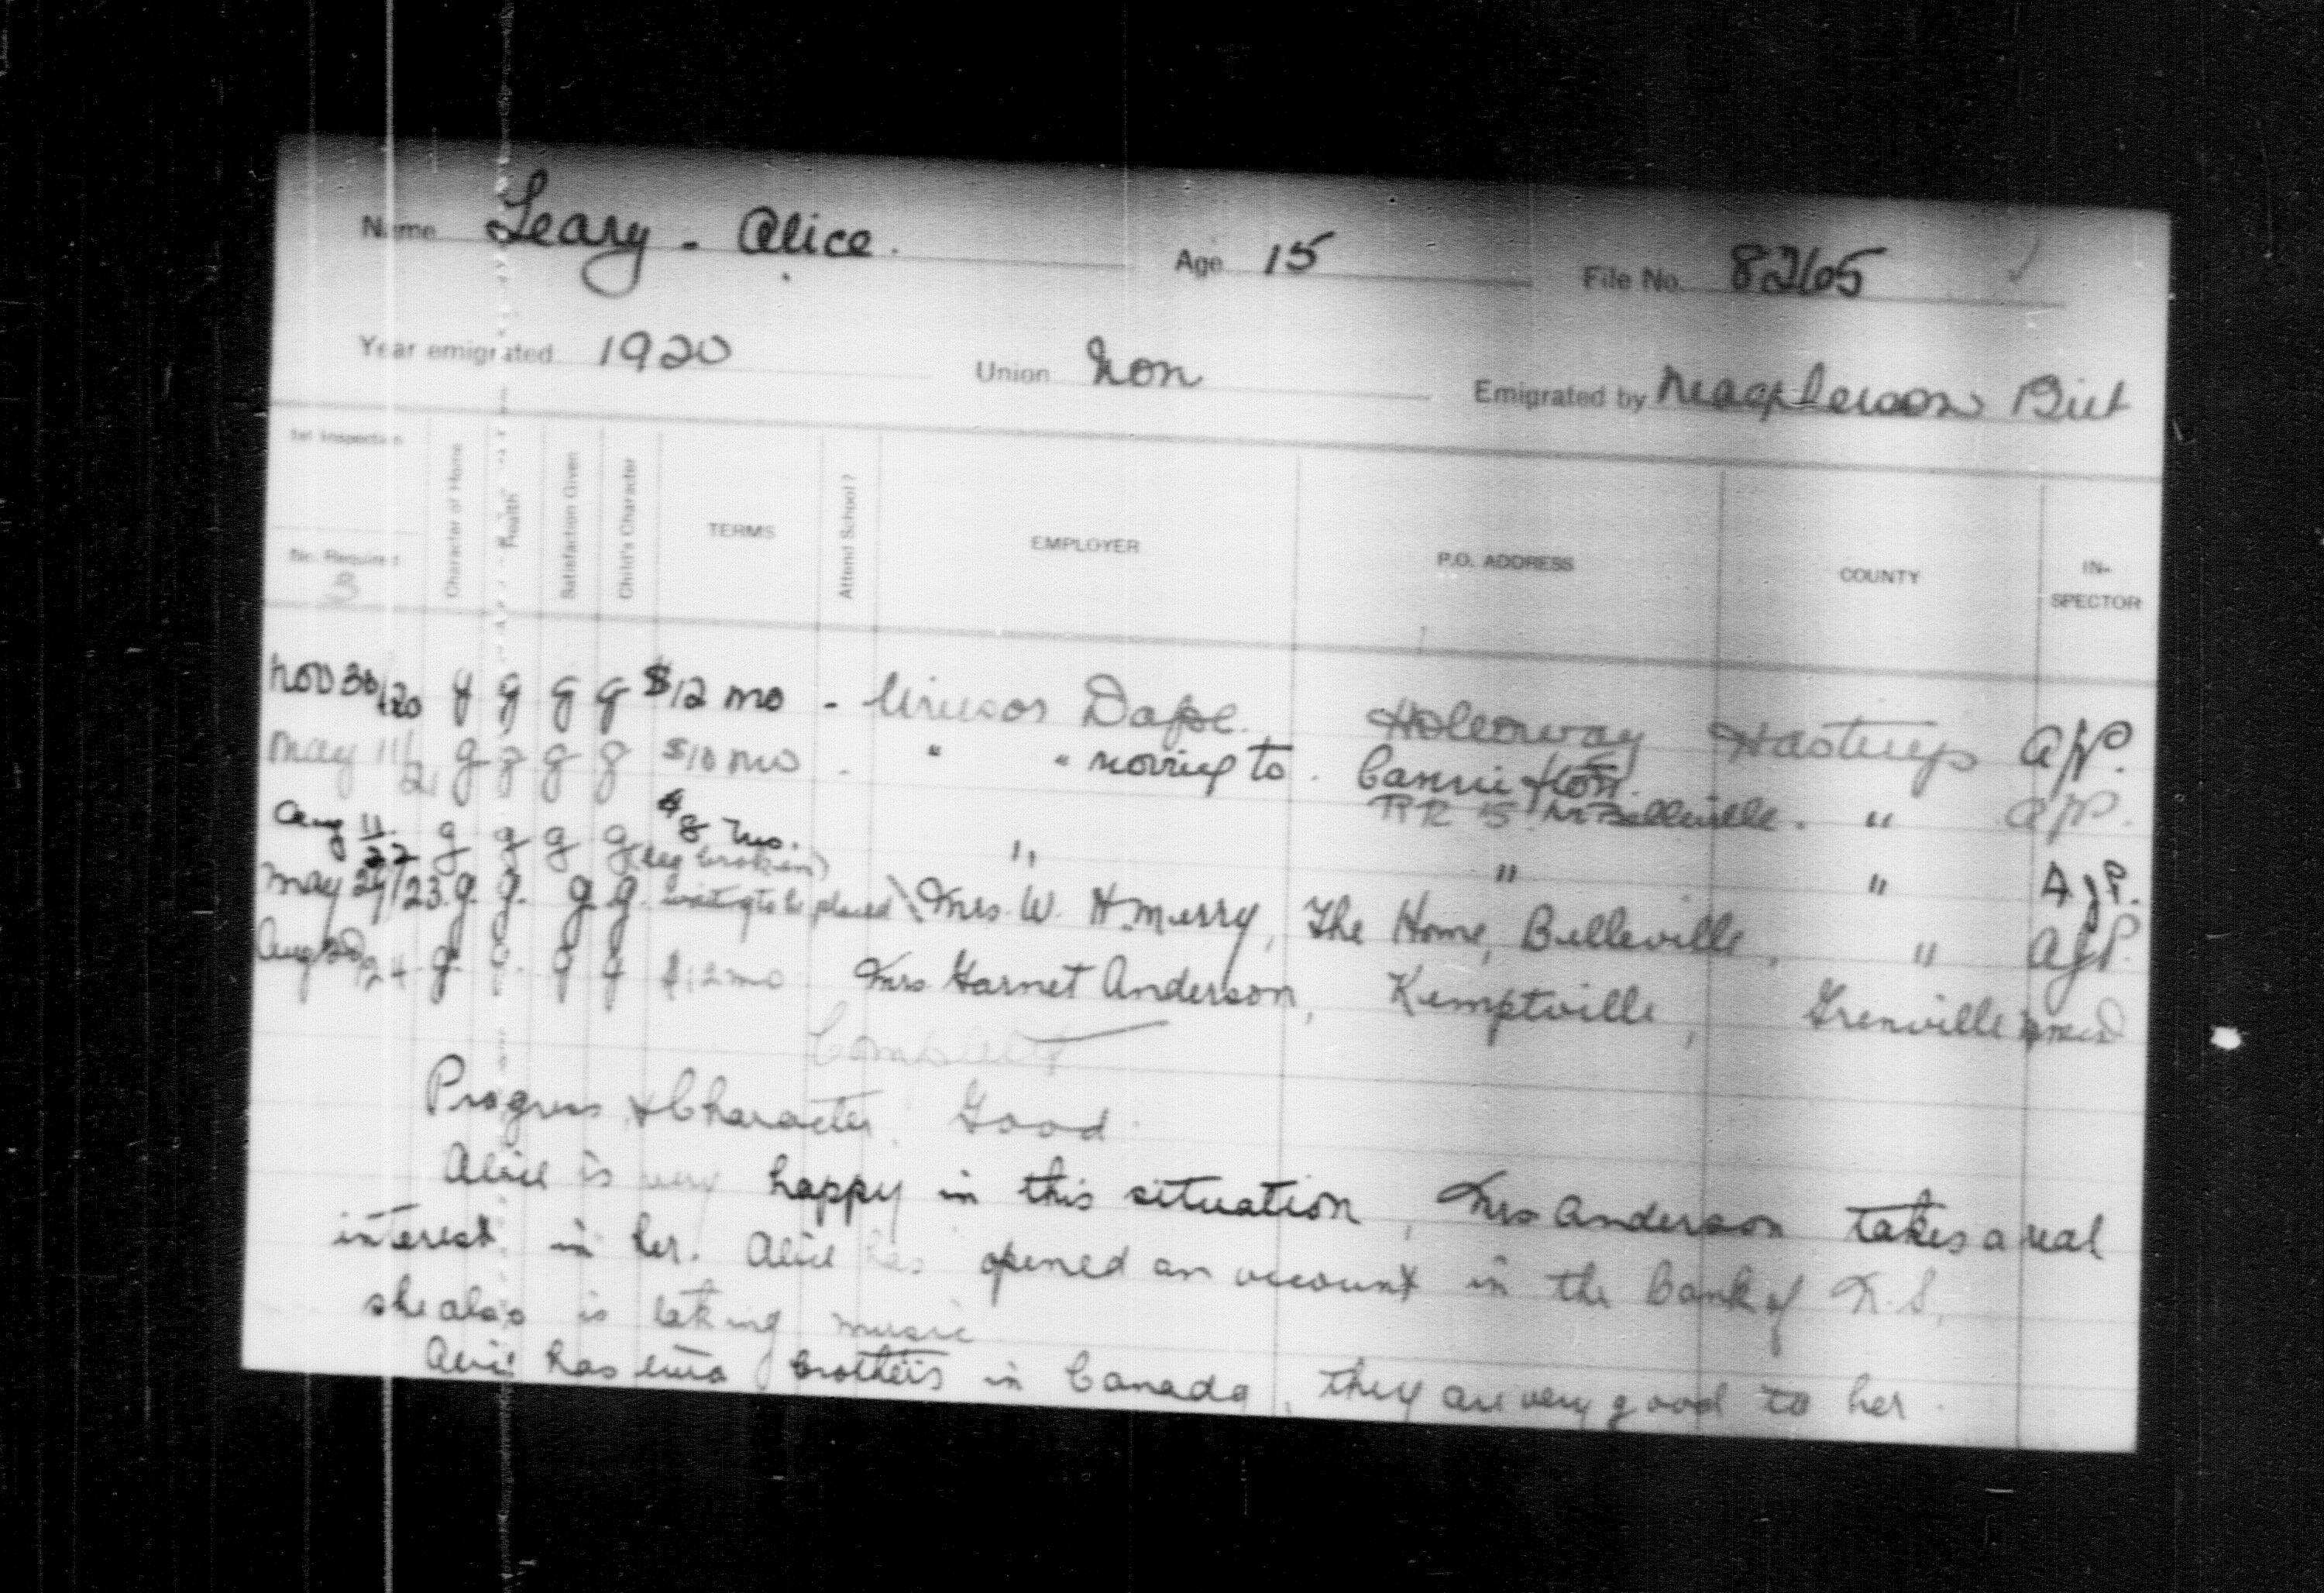 Name Leary - Alice. Age 15 File No. 8265
Year emigrated 1920 Union Non Emigrated by Macpherson Birt
1st Inspection
No. Required
3
Character of Home Health Satisfaction Given Child's Character TERMS Attend School? EMPLOYER P.O. ADDRESS COUNTY IN-SPECTOR
Nov 30/20 g g g g $12 mo - Holloway Hastings AJP.
May 11/21 g g g g $10 mo - " " moving to. Cannifton.
RR 5 Belleville. " AJP.
Aug 11/22 g g g g $8 mo. " " " A.J.P.
(leg broken)
May 24/23. g. g. g. g. waiting to be placed Mrs. W. H. Merry, The Home, Belleville, " AJP.
Aug 20/24 g. g. g g $12 mo Mrs Garnet Anderson, Kemptville, Grenville
Complete
Progress & Character. Good.
Alice is very happy in this situation, Mrs Anderson takes a real
interest in her. Alice has opened an account in the Bank of N.S,
she also is taking music
Alice has two brothers in Canada, they are very good to her.